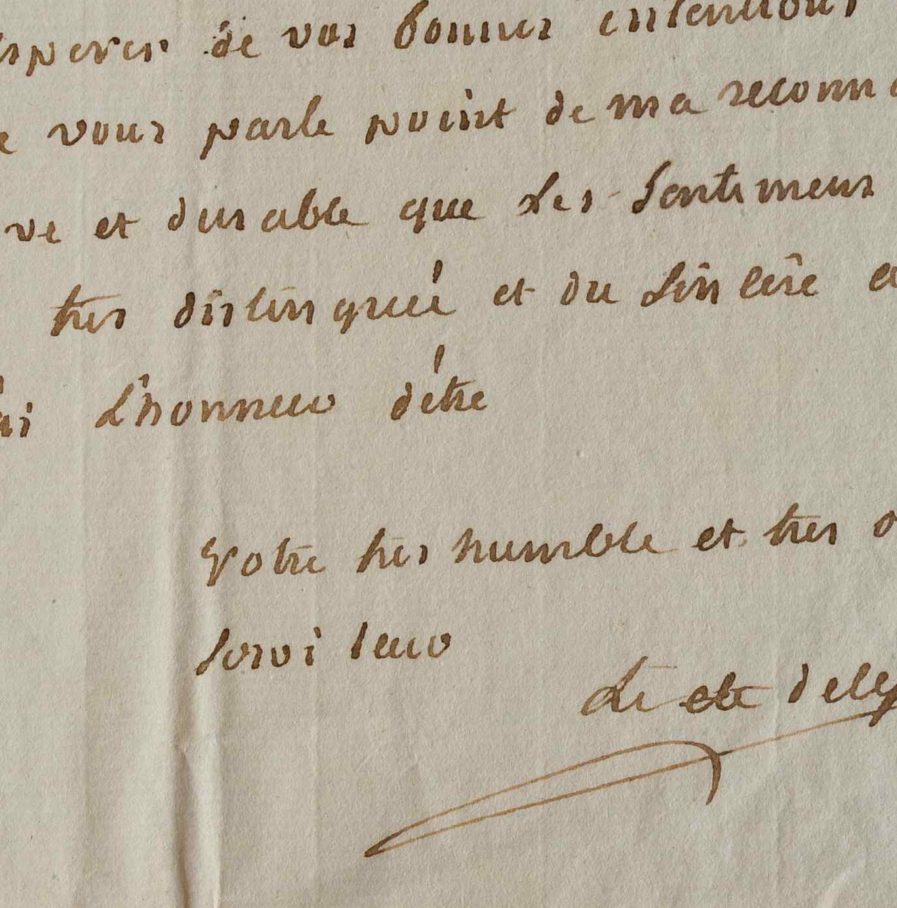 esperer de vos bonnes intentions
vous parle point de ma reconna
ve et durable que les sentimens
tres distinguée et du sincere
ai l'honneur d'étre
Votre tres humble et tres o
serviteur
Le cte de